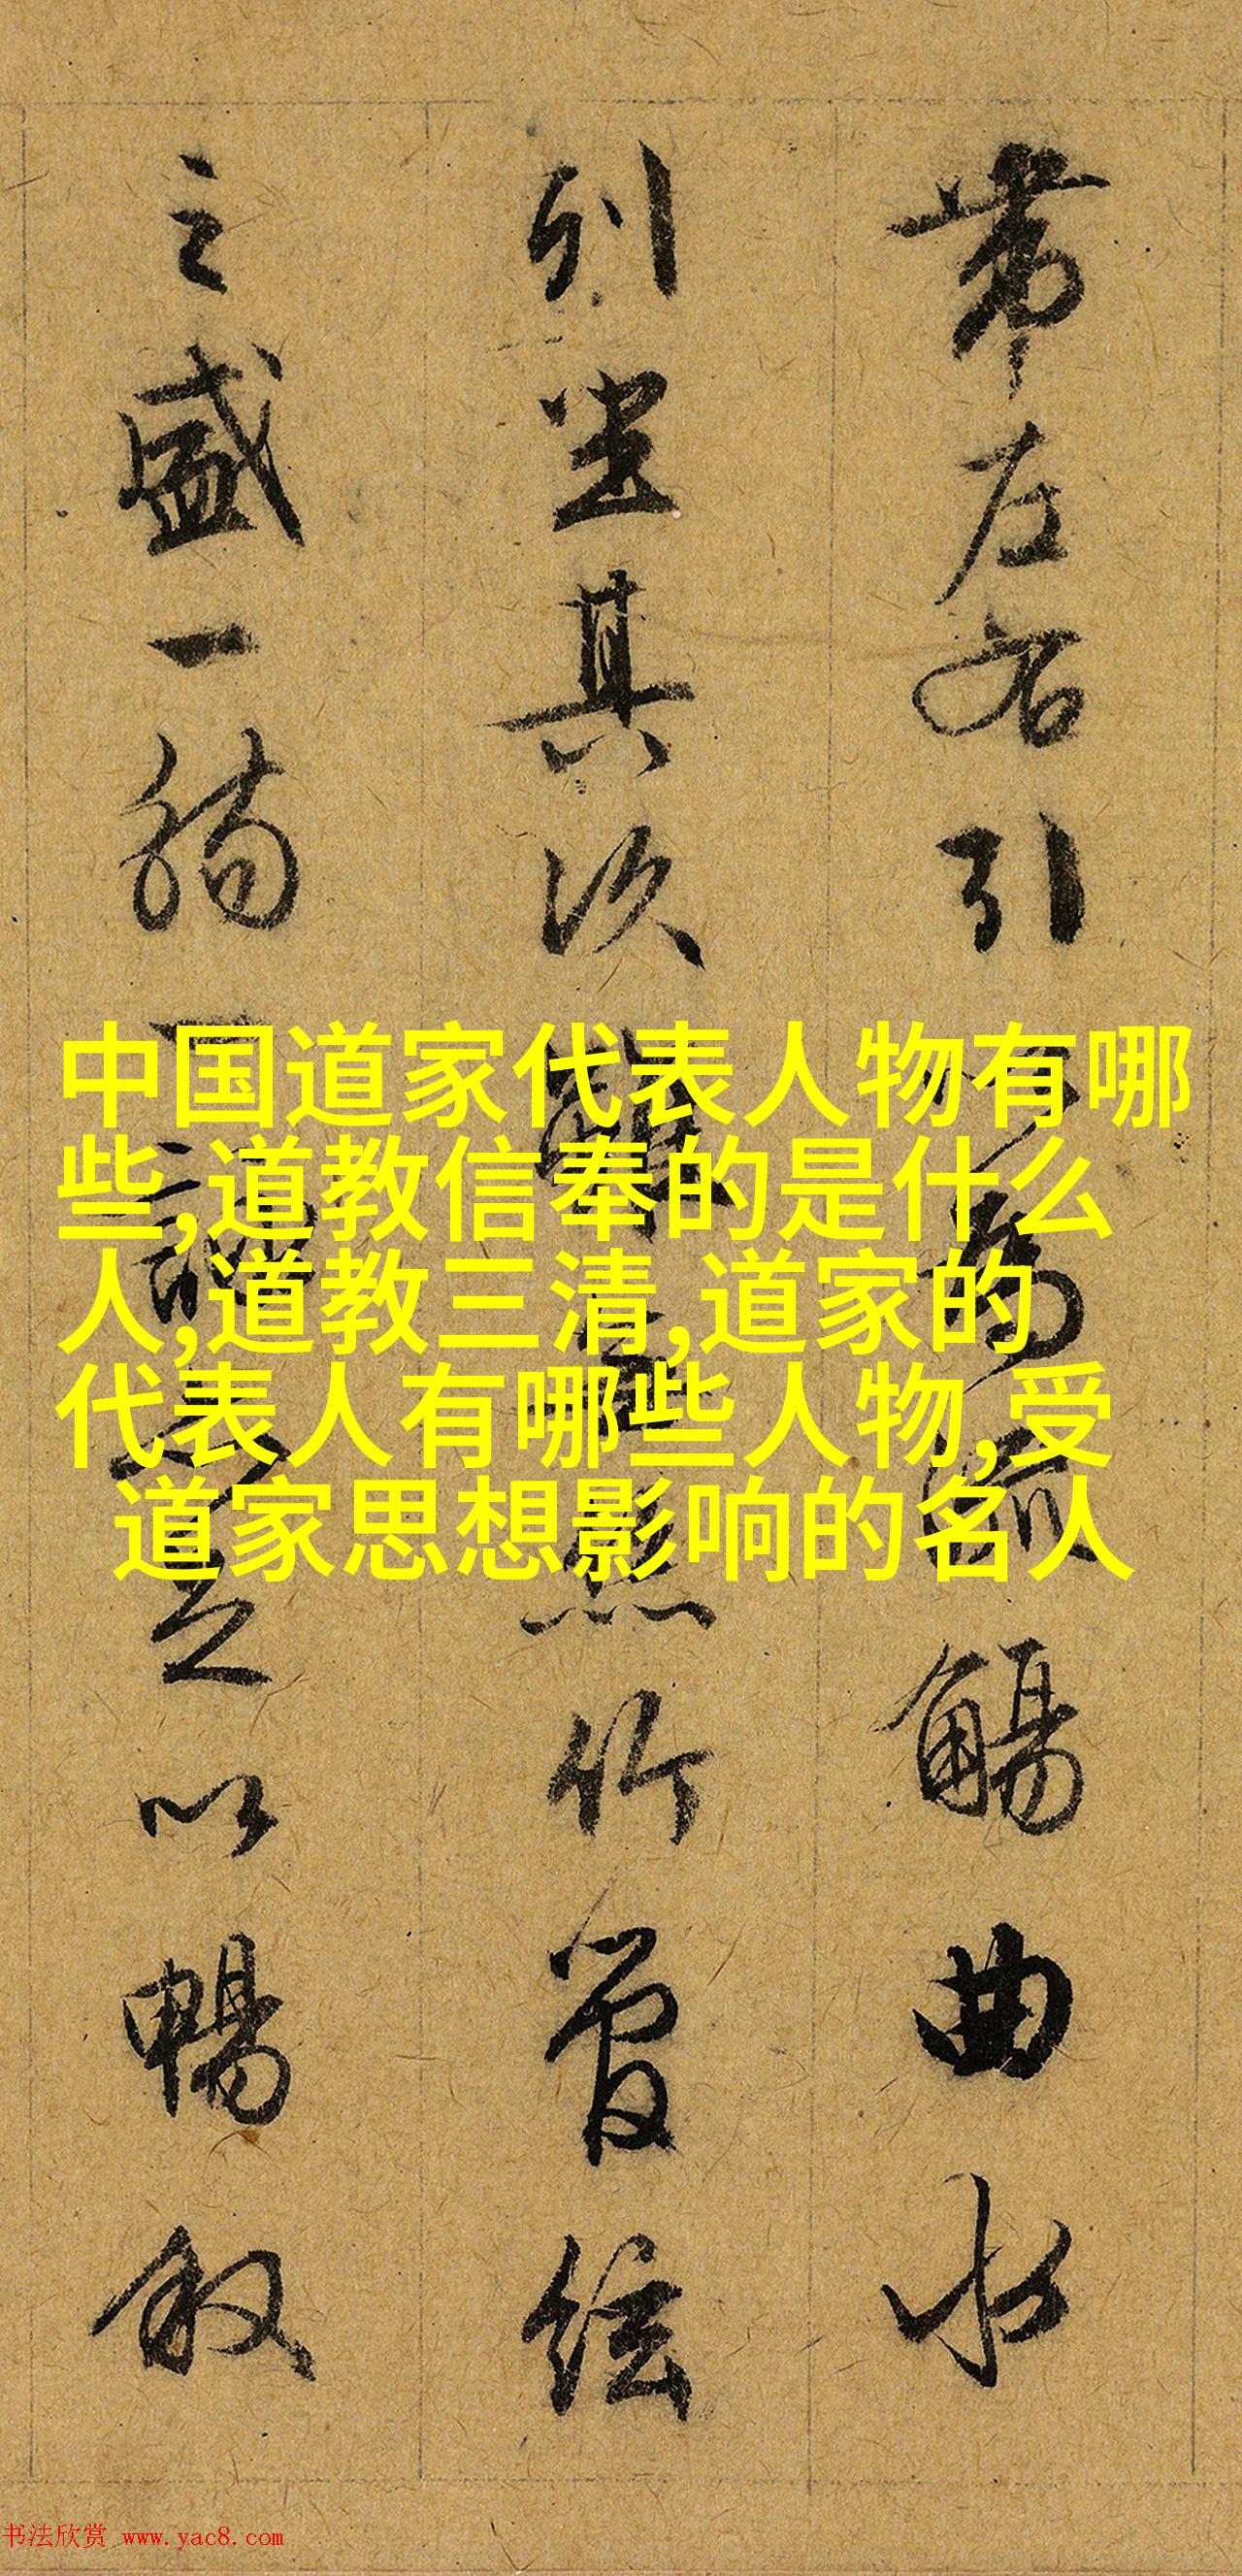 帶左右引以為流觴曲水
列坐其次雖無竹管絃
之盛一觴一詠亦足以暢叙
中国道家代表人物有哪
些,道教信奉的是什么
人,道教三清,道家的
代表人有哪些人物,受
道家思想影响的名人
书法欣赏 www.yac8.com